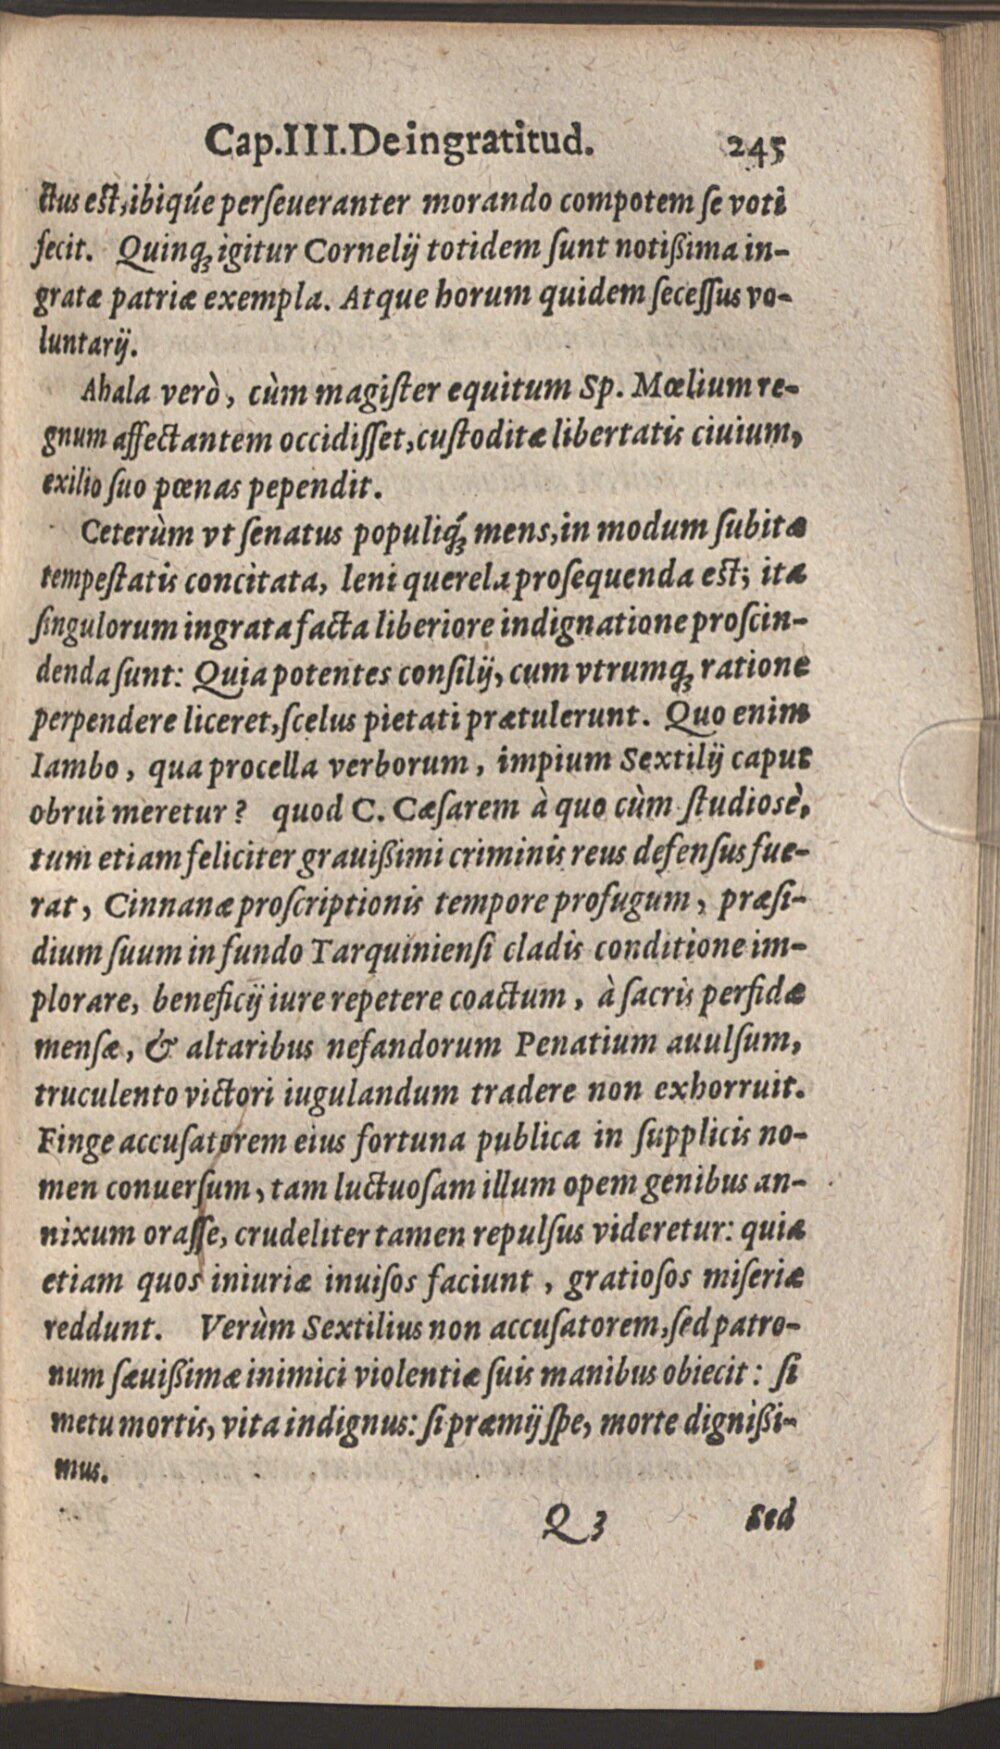 Cap.III.De ingratitud. 245
ctus est, ibiq́ue perſeueranter morando compotem ſe voti
fecit. Quinq; igitur Cornelij totidem ſunt notißima in-
gratæ patriæ exempla. Atque horum quidem ſeceſſus vo-
luntarij.
Ahala verò, cùm magiſter equitum Sp. Mœlium re-
gnum affectantem occidiſſet, cuſtoditæ libertatis ciuium,
exilio ſuo pœnas pependit.
Ceterùm vt ſenatus populiq́; mens, in modum ſubitæ
tempeſtatis concitata, leni querela proſequenda est; ita
ſingulorum ingrata facta liberiore indignatione proſcin-
denda ſunt: Quia potentes conſilij, cum vtrumq; ratione
perpendere liceret, ſcelus pietati prætulerunt. Quo enim
Iambo, qua procella verborum, impium Sextilij caput
obrui meretur? quod C. Cæſarem à quo cùm ſtudiosè,
tum etiam feliciter grauißimi criminis reus defenſus fue-
rat, Cinnanæ proſcriptionis tempore profugum, præſi-
dium ſuum in fundo Tarquinienſi cladis conditione im-
plorare, beneficij iure repetere coactum, à ſacris perfidæ
menſæ, & altaribus nefandorum Penatium auulſum,
truculento victori iugulandum tradere non exhorruit.
Finge accuſatorem eius fortuna publica in ſupplicis no-
men conuerſum, tam luctuoſam illum opem genibus an-
nixum oraſſe, crudeliter tamen repulſus videretur: quia
etiam quos iniuriæ inuiſos faciunt, gratioſos miſeriæ
reddunt. Verùm Sextilius non accuſatorem, ſed patro-
num ſæuißimæ inimici violentiæ ſuis manibus obiecit: ſi
metu mortis, vita indignus: ſi præmij ſpe, morte dignißi-
mus.
Q 3 Sed